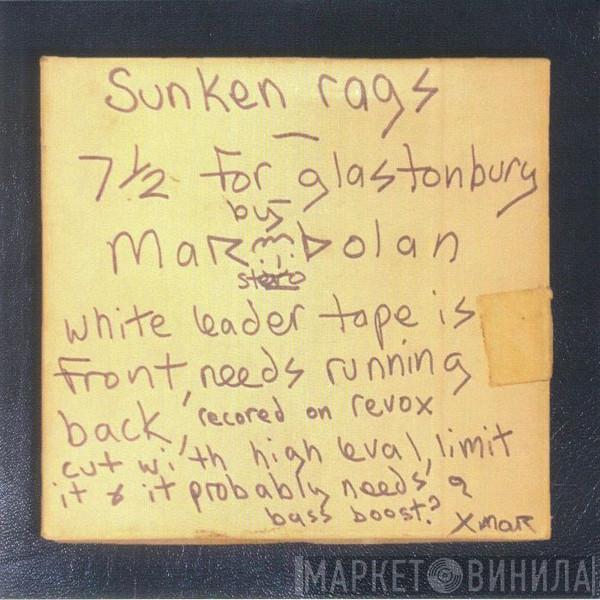 Sunken rags
7 1/2 for glastonbury
by
Marc Bolan
stero
white leader tape is
front, needs running
back, recored on revox
cut with high leval, limit
it & it probably needs a
bass boost? X Mar
МАРКЕТ ВИНИЛА